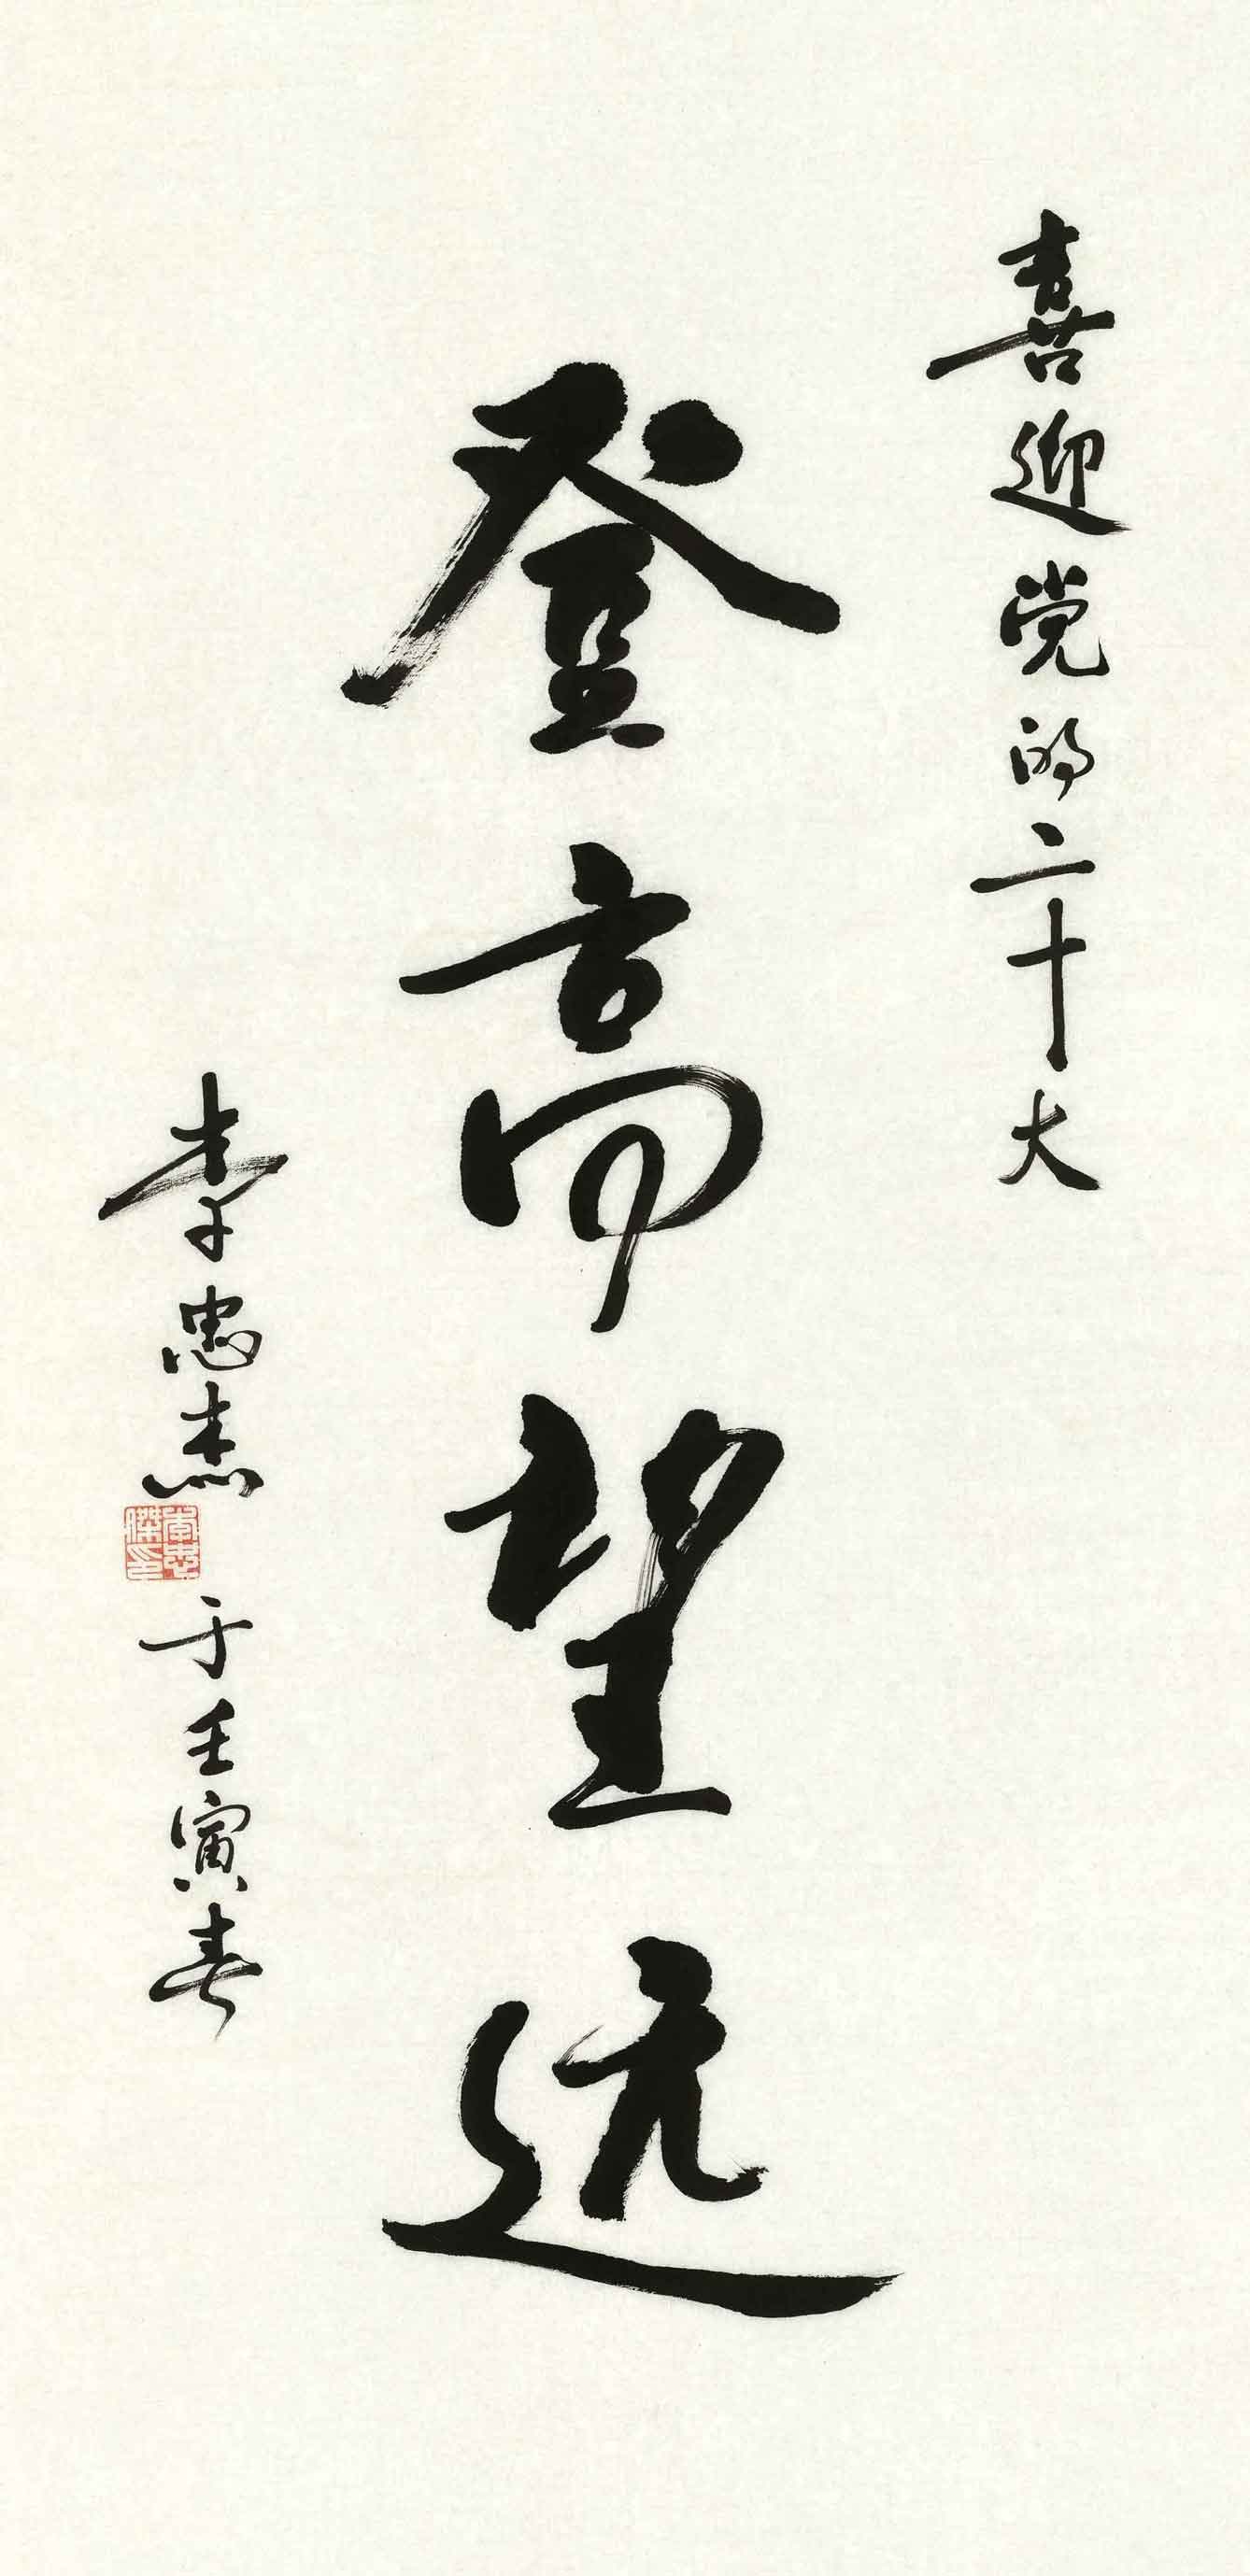 喜迎党的二十大
登高望远
李忠杰
李忠傑印
于壬寅春